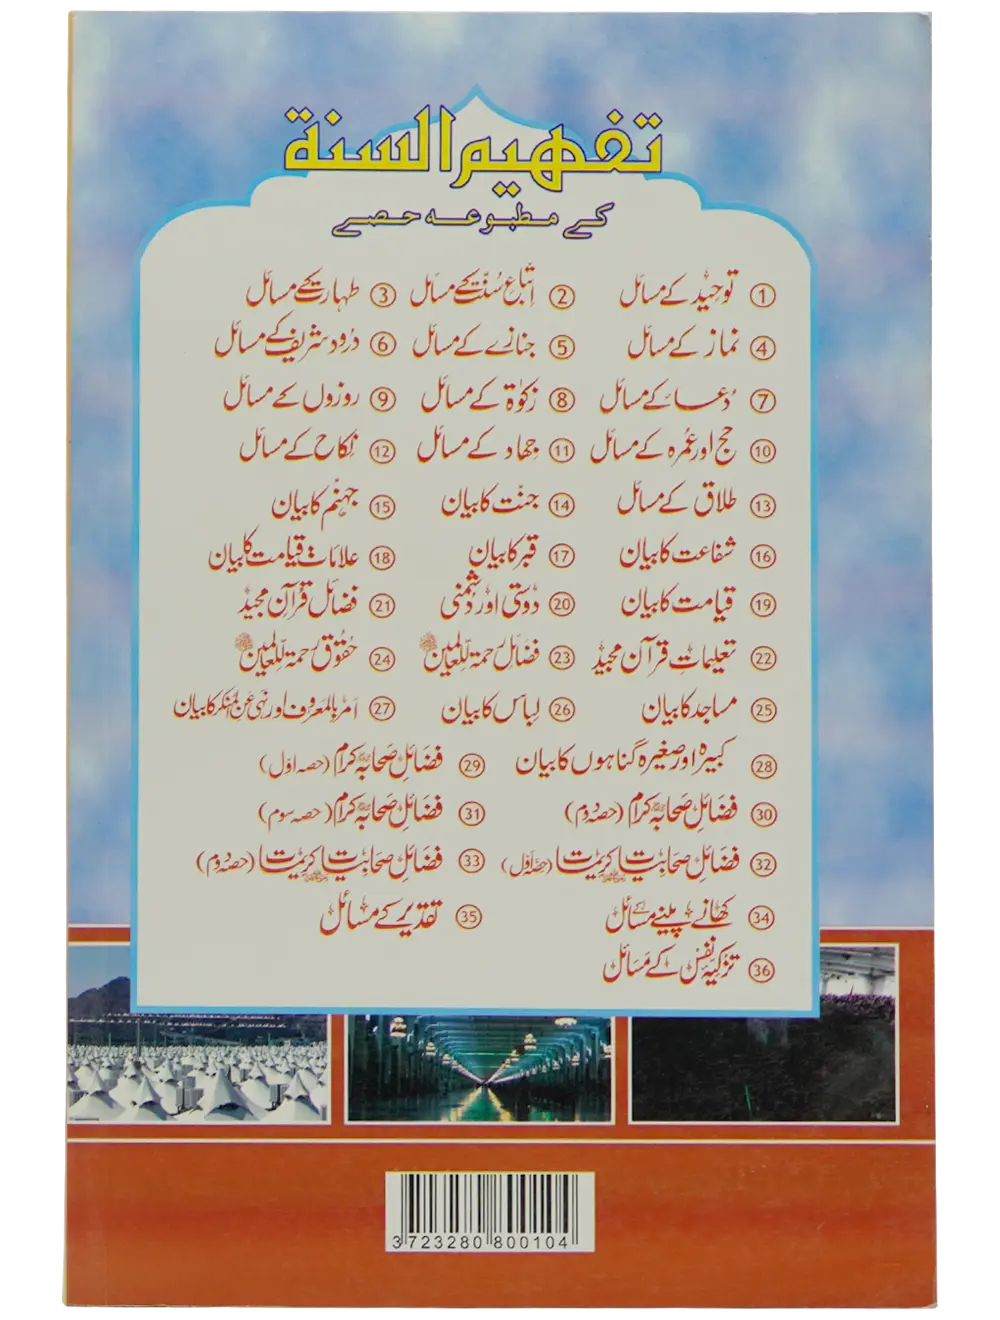 تفہیم السنۃ
کے مطبوعہ حصے
① توحید کے مسائل ② اتباعِ سنت کے مسائل ③ طہارت کے مسائل
④ نماز کے مسائل ⑤ جنازے کے مسائل ⑥ درود شریف کے مسائل
⑦ دعا کے مسائل ⑧ زکوٰۃ کے مسائل ⑨ روزوں کے مسائل
⑩ حج اور عمرہ کے مسائل ⑪ جہاد کے مسائل ⑫ نکاح کے مسائل
⑬ طلاق کے مسائل ⑭ جنت کا بیان ⑮ جہنم کا بیان
⑯ شفاعت کا بیان ⑰ قبر کا بیان ⑱ علاماتِ قیامت کا بیان
⑲ قیامت کا بیان ⑳ دوستی اور دشمنی ㉑ فضائل قرآن مجید
㉒ تعلیماتِ قرآن مجید ㉓ فضائل رحمۃ للعالمین ㉔ حقوق رحمۃ للعالمین
㉕ مساجد کا بیان ㉖ لباس کا بیان ㉗ امر بالمعروف اور نہی عن المنکر کا بیان
㉘ کبیرہ اور صغیرہ گناہوں کا بیان ㉙ فضائلِ صحابہ کرام (حصہ اول)
㉚ فضائلِ صحابہ کرام (حصہ دوم) ㉛ فضائلِ صحابہ کرام (حصہ سوم)
㉜ فضائلِ صحابیات کریمات (حصہ اول) ㉝ فضائلِ صحابیات کریمات (حصہ دوم)
㉞ کھانے پینے کے مسائل ㉟ تقدیر کے مسائل
㊱ تزکیۂ نفس کے مسائل
3 723280 800104